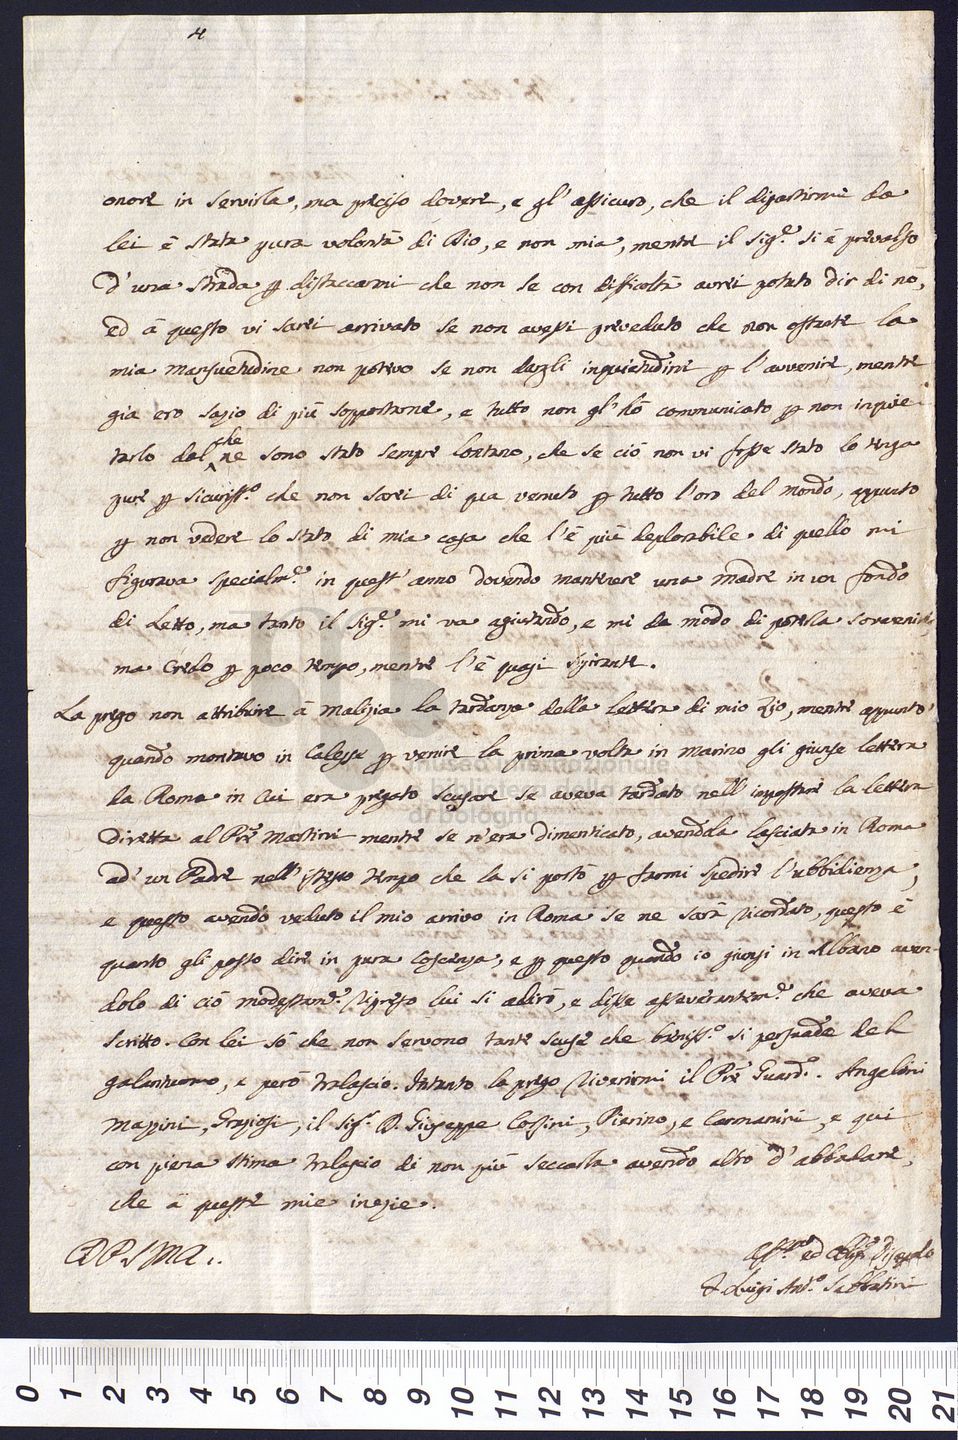 4
onore in servirla, ma preciso dovere, e gl' assicuro, che il dipartirmi da
lei é stata pura volontá di Dio, e non mia, mentre il Sig.e si é prevalso
d' una strada p distaccarmi che non se con difficoltá avrei potuto dir di nó,
ed á questo vi sarei arrivato se non avessi preveduto che non ostante la
mia mansuetudine non potevo se non dargli inquietudini p l'avvenire, mentre
gia ero sazio di piú sopportarne, e tutto non gl' hó communicato p non inquie-
tarlo dal che ne sono stato sempre lontano, che se ció non vi fosse stato lo tenga
pure p sicuriss.o che non sarei di qua venuto p tutto l'oro del mondo, appunto
p non vedere lo stato di mia casa che l'é piú deplorabile di quello mi
figurava specialm.e in quest' anno dovendo mantenere una madre in un fondo
di Letto, ma tanto il Sig.e mi va agiutando, e mi da modo di poterla sovvenire
ma credo p poco tempo, mentre l'é quasi spirante.
La prego non attribuire á malizia la tardanza della lettera di mio Zio, mentre appunto
quando montavo in Calesse p venire la prima volta in Marino gli giunse lettera
da Roma in cui era pregato scusare se aveva tardato nell' impostare la lettera
diretta al Pre Mæstini mentre se n'era dimenticato, avendola lasciata in Roma
ad' un Padre nell' istesso tempo che la si portó p farmi spedire l'ubbidienza;
e questo avendo veduto il mio arrivo in Roma se ne sará ricordato, questo é
quanto gli posso dire in pura coscenza, e p questo quando io giunsi in Albano aven-
dolo di ció modestam.e ripreso lui si adiró, e disse asseverantem.e che aveva
scritto. Con lei só che non servono tante scuse che beniss.o si persuade del
galantuomo, e peró tralascio. Intanto la prego riverirmi il Pre Guard.o. Angelini
Mazzini, Graziosi, il Sig.r D. Giuseppe Corsini, Pierino, e Carmanini, e qui
con piena stima tralascio di non piú seccarla avendo altro d' abbadare,
che á queste mie inezie.
Aff.mo ed Obb.o Discepolo
F Luigi Ant.o Sabbatini
museo internazionale
e biblioteca della musica
di bologna
0 1 2 3 4 5 6 7 8 9 10 11 12 13 14 15 16 17 18 19 20 21